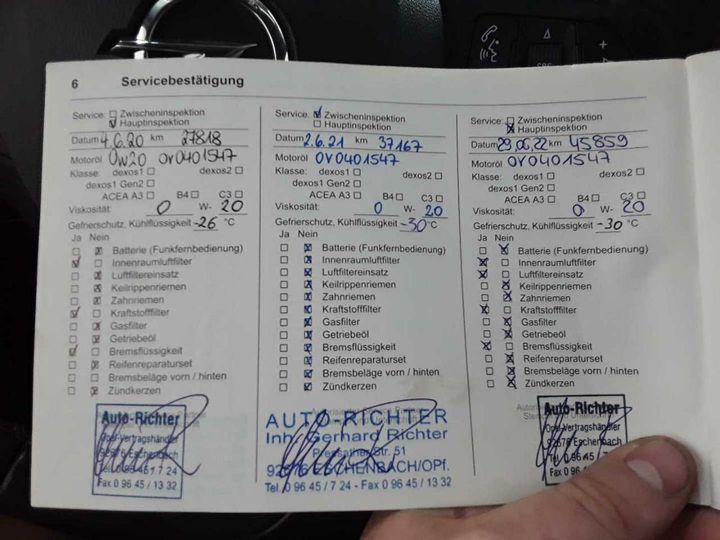 6 Servicebestätigung
Service: ☐ Zwischeninspektion
☑ Hauptinspektion
Datum 4.6.20 km 27818
Motoröl 0W20 OV0401547
Klasse: dexos1 ☐ dexos2 ☐
dexos1 Gen2 ☐
ACEA A3 ☐ B4 ☐ C3 ☐
Viskosität: 0 W- 20
Gefrierschutz, Kühlflüssigkeit -26 °C
Ja Nein
☐ ☒ Batterie (Funkfernbedienung)
☑ ☐ Innenraumluftfilter
☐ ☒ Luftfiltereinsatz
☐ ☒ Keilrippenriemen
☐ ☒ Zahnriemen
☑ ☐ Kraftstofffilter
☐ ☒ Gasfilter
☐ ☒ Getriebeöl
☑ ☐ Bremsflüssigkeit
☐ ☒ Reifenreparaturset
☐ ☒ Bremsbeläge vorn / hinten
☐ ☒ Zündkerzen
Auto-Richter
Opel-Vertragshändler
92676 Eschenbach
Tel. 0 96 45 / 7 24
Fax 0 96 45 / 13 32
Service: ☑ Zwischeninspektion
☐ Hauptinspektion
Datum 2.6.21 km 37167
Motoröl OV0401547
Klasse: dexos1 ☐ dexos2 ☐
dexos1 Gen2 ☐
ACEA A3 ☐ B4 ☐ C3 ☐
Viskosität: 0 W- 20
Gefrierschutz, Kühlflüssigkeit -30 °C
Ja Nein
☐ ☒ Batterie (Funkfernbedienung)
☐ ☒ Innenraumluftfilter
☐ ☒ Luftfiltereinsatz
☐ ☒ Keilrippenriemen
☐ ☒ Zahnriemen
☐ ☒ Kraftstofffilter
☐ ☒ Gasfilter
☐ ☒ Getriebeöl
☐ ☒ Bremsflüssigkeit
☐ ☒ Reifenreparaturset
☐ ☒ Bremsbeläge vorn / hinten
☐ ☒ Zündkerzen
AUTO-RICHTER
Inh. Gerhard Richter
Pressather Str. 51
92676 ESCHENBACH/OPf.
Tel. 0 96 45 / 7 24 - Fax 0 96 45 / 13 32
Service: ☐ Zwischeninspektion
☒ Hauptinspektion
Datum 29.06.22 km 45859
Motoröl OV0401547
Klasse: dexos1 ☐ dexos2 ☐
dexos1 Gen2 ☐
ACEA A3 ☐ B4 ☐ C3 ☐
Viskosität: 0 W- 20
Gefrierschutz, Kühlflüssigkeit -30 °C
Ja Nein
☐ ☒ Batterie (Funkfernbedienung)
☒ ☐ Innenraumluftfilter
☒ ☐ Luftfiltereinsatz
☐ ☒ Keilrippenriemen
☐ ☒ Zahnriemen
☒ ☐ Kraftstofffilter
☐ ☒ Gasfilter
☐ ☒ Getriebeöl
☒ ☐ Bremsflüssigkeit
☐ ☒ Reifenreparaturset
☐ ☒ Bremsbeläge vorn / hinten
☐ ☒ Zündkerzen
Auto-Richter
Opel-Vertragshändler
92676 Eschenbach
Tel. 0 96 45 / 7 24
Fax 0 96 45 / 13 32